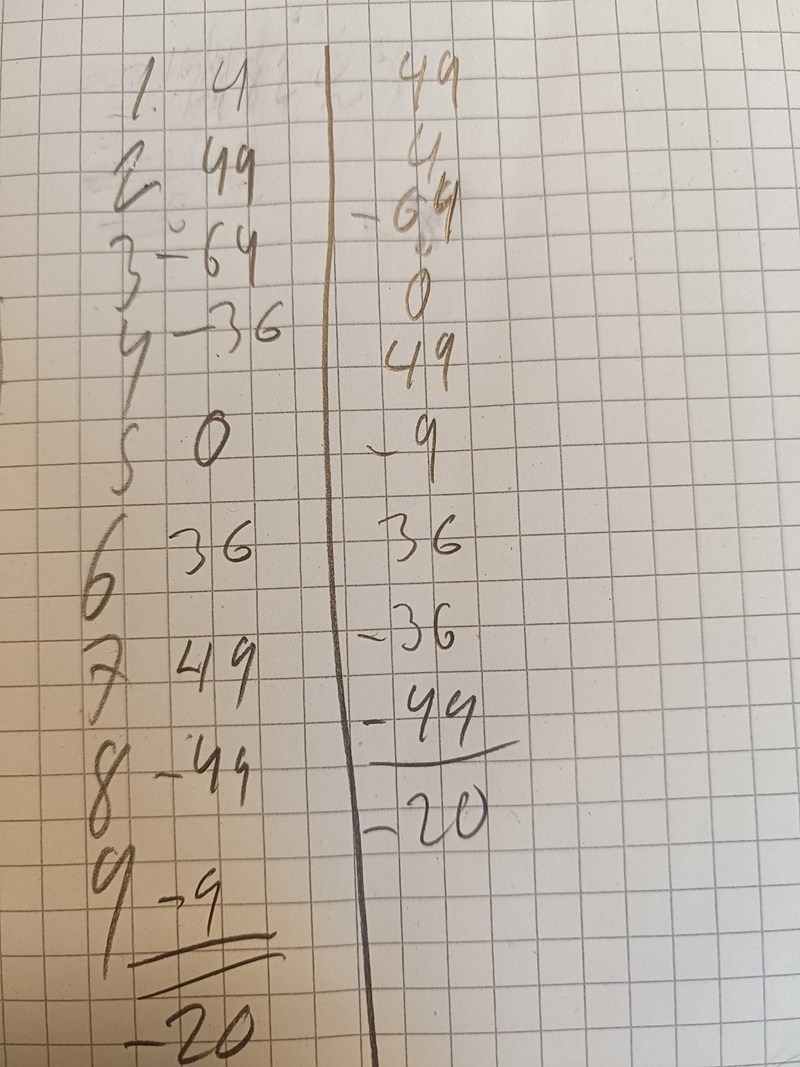 1. 4
2 49
3 -64
4 -36
5 0
6 36
7 49
8 -49
9 -9
-20
49
4
-64
0
49
-9
36
-36
-49
-20